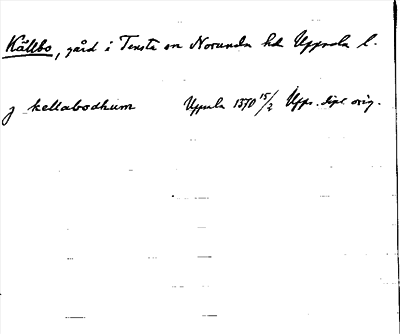 Källbo, gård i Tensta sn Norunda hd Uppsala l.
j kellabodhum Uppsala 1370 15/2 Upps. dipl orig.